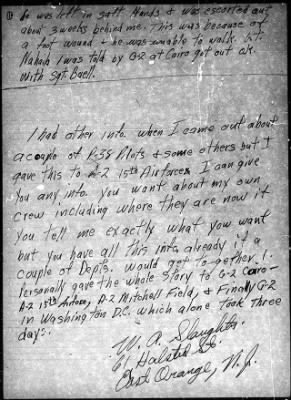 ① he was left in safe Hands & was escorted out
about 3 weeks behind me. This was because of
a foot wound & he was unable to walk. Lt.
I was told by G-2 at Cairo got out ok.
with Sgt
I had other info. when I came out about
a couple of P-38 Pilots & some others but I
gave this to A-2 15th Airforce. I can give
you any info. you want about my own
crew including where they are now if
you tell me exactly what you want
but you have all this info. already if a
couple of Depts. would get to gether. I
Personally gave the whole story to G-2 Cairo-
A-2 15th Airforce, A-2 Mitchell Field, & Finally G-2
in Washington D.C. which alone took three
days.
W. A. Slaughter
61 Halsted St.
East Orange, N.J.